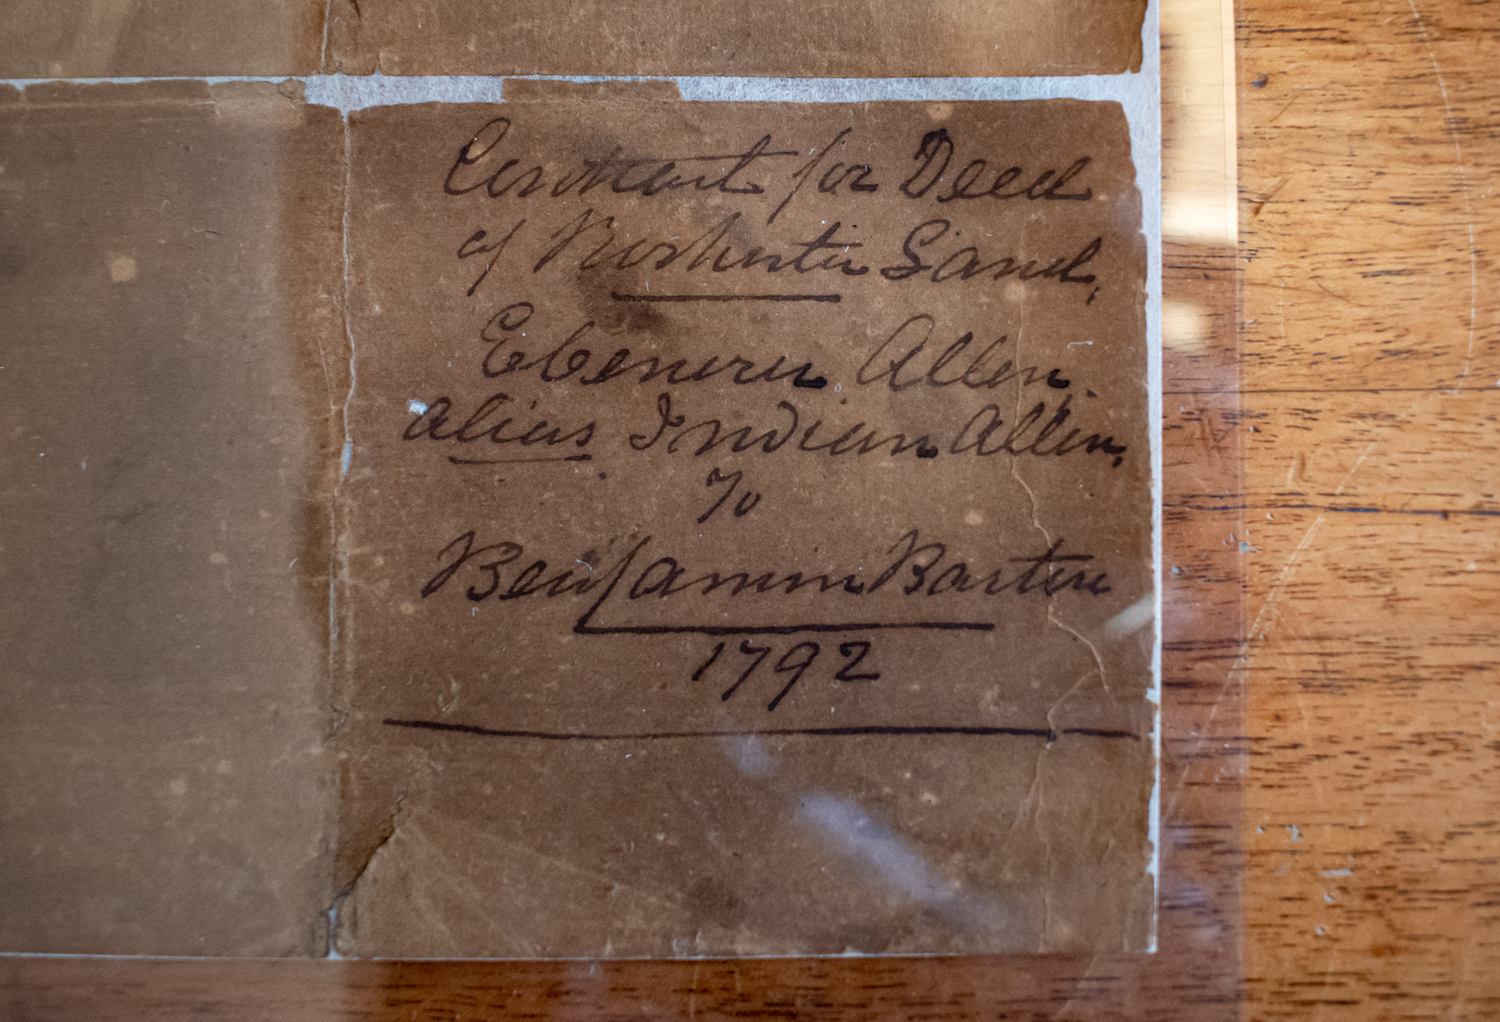 Contract for Deed
of Rochester Land,
Ebenezer Allen,
alias Indian Allen,
To
Benjamin Barton
1792